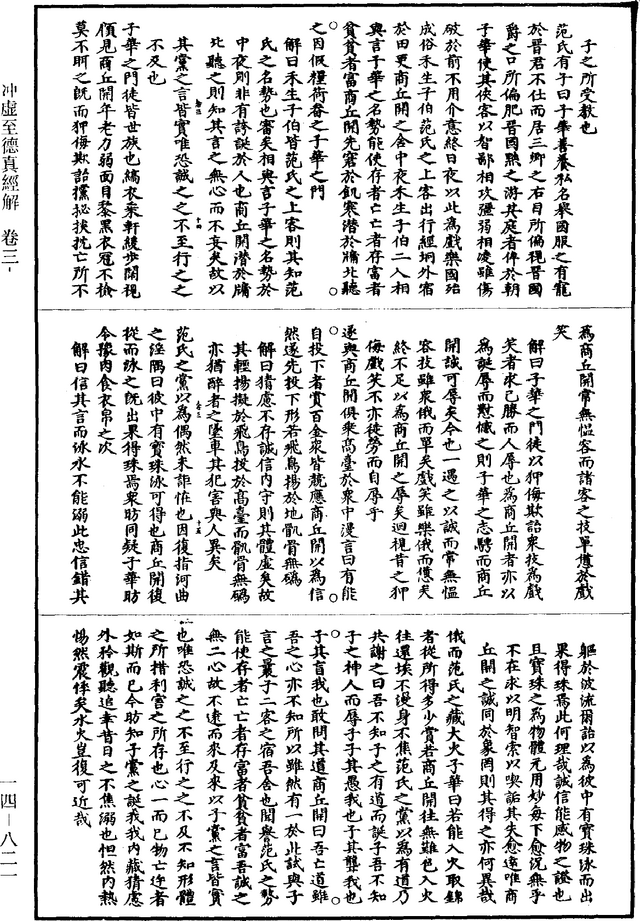 子之所受教也
范氏有子曰子華善養私名舉國服之有寵
於晉君不仕而居三卿之右目所偏視晉國
爵之口所偏肥晉國黜之游其庭者侔於朝
子華使其俠客以智鄙相攻彊弱相凌雖傷
破於前不用介意終日夜以此為戲樂國殆
成俗禾生子伯范氏之上客出行經坰外宿
於田更商丘開之舍中夜禾生子伯二人相
與言子華之名勢能使存者亡亡者存富者
貧貧者富商丘開先窘於飢寒潛於牖北聽
之因假糧荷畚之子華之門
解曰禾生子伯皆范氏之上客則其知范
氏之名勢也審矣相與言子華之名勢於
中夜則非有誇誕於人也商丘開潛於牖
北聽之則知其言之無心而不妄矣故以
卷三 十四
其黨之言皆實唯恐誠之之不至行之之
不及也
子華之門徒皆世族也縞衣乘軒緩步闊視
顧見商丘開年老力弱面目黎黑衣冠不檢
莫不眲之既而狎侮欺詒攩㧙挨抌亡所不
為商丘開常無慍容而諸客之技單憊於戲
笑
解曰子華之門徒以狎侮欺詒衆技為戲
笑者求己勝而人辱也為商丘開者亦以
為誕辱而慰憾之則子華之志騁而商丘
開誠可辱矣今也一遇之以誠而常無慍
容技雖衆俄而單矣戲笑雖樂俄而憊矣
終不足以為商丘開之辱矣迴視昔之狎
侮戲笑不亦徒勞而自辱乎
遂與商丘開俱乘高臺於衆中漫言曰有能
自投下者賞百金衆皆競應商丘開以為信
然遂先投下形若飛鳥揚於地骩骨無䃣
解曰猜慮不存誠信内守則其體虛矣故
其輕揚擬於飛鳥投於高臺而骩骨無䃣
亦猶醉者之墜車其犯害與人異矣
卷三 十五
范氏之黨以為偶然未詎怪也因復指河曲
之淫隅曰彼中有寶珠泳可得也商丘開復
從而泳之既出果得珠焉衆昉同疑子華昉
令豫肉食衣帛之次
解曰信其言而泳水不能溺此忠信錯其
軀於波流爾詒以為彼中有寶珠泳而出
果得珠焉此何理哉誠信能感物之證也
且寶珠之為物體元用妙每下愈況無乎
不在求以明智索以喫詬其失愈遠唯商
丘開之誠同於象罔則其得之亦何異哉
俄而范氏之藏大火子華曰若能入火取錦
者從所得多少賞若商丘開往無難色入火
往還埃不漫身不焦范氏之黨以為有道乃
共謝之曰吾不知子之有道而誕子吾不知
子之神人而辱子子其愚我也子其聾我也
子其盲我也敢問其道商丘開曰吾亡道雖
吾之心亦不知所以雖然有一於此試與子
言之曩子二客之宿吾舍也聞譽范氏之勢
能使存者亡亡者存富者貧貧者富吾誠之
無二心故不遠而來及來以子黨之言皆實
也唯恐誠之之不至行之之不及不知形體
之所措利害之所存也心一而已物亡迕者
如斯而已今昉知子黨之誕我我内藏猜慮
外矜觀聽追幸昔日之不焦溺也怛然内熱
惕然震悸矣水火豈復可近哉
冲虛至德真經解 卷三
一四—八二一